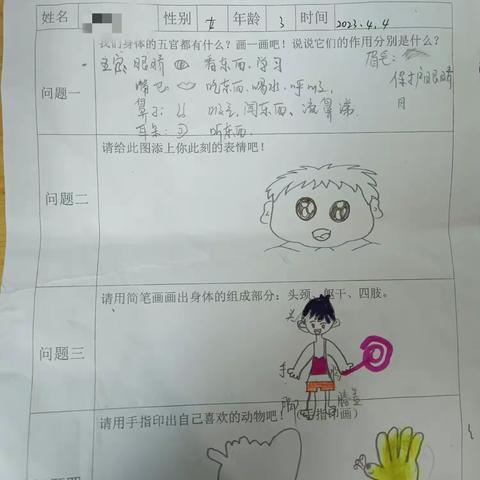 姓名 性别 女 年龄 3 时间 2023.4.4
我们身体的五官都有什么？画一画吧！说说它们的作用分别是什么？
问题一
五官 眼睛 看东西.学习
眉毛:
保护眼睛
嘴巴 吃东西.喝水.呼吸.
鼻子: 呼吸,闻东西、流鼻涕.
耳朵: 听东西.
请给此图添上你此刻的表情吧！
问题二
请用简笔画画出身体的组成部分：头颈、躯干、四肢。
问题三
头
手
脚
膝盖
请用手指印出自己喜欢的动物吧！（手指印画）